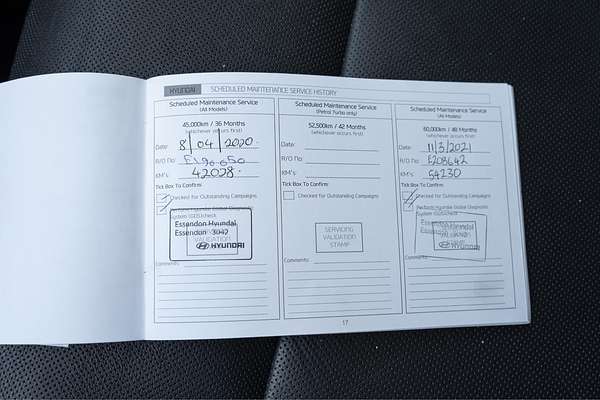 HYUNDAI SCHEDULED MAINTENANCE SERVICE HISTORY
Scheduled Maintenance Service
(All Models)
45,000km / 36 Months
(whichever occurs first)
Date: 8/04/2020
R/O No:
KM's: 42028
Tick Box To Confirm:
Checked for Outstanding Campaigns
Perform Hyundai Global Diagnostic
System (GDS) check
Essendon Hyundai
Essendon 3040
VALIDATION
HYUNDAI
Comments:
Scheduled Maintenance Service
(Petrol Turbo only)
52,500km / 42 Months
(whichever occurs first)
Date:
R/O No:
KM's:
Tick Box To Confirm:
Checked for Outstanding Campaigns
SERVICING
VALIDATION
STAMP
Comments:
Scheduled Maintenance Service
(All Models)
60,000km / 48 Months
(whichever occurs first)
Date: 11/3/2021
R/O No: E208642
KM's: 54230
Tick Box To Confirm:
Checked for Outstanding Campaigns
Perform Hyundai Global Diagnostic
System (GDS) check
HYUNDAI
Comments:
17